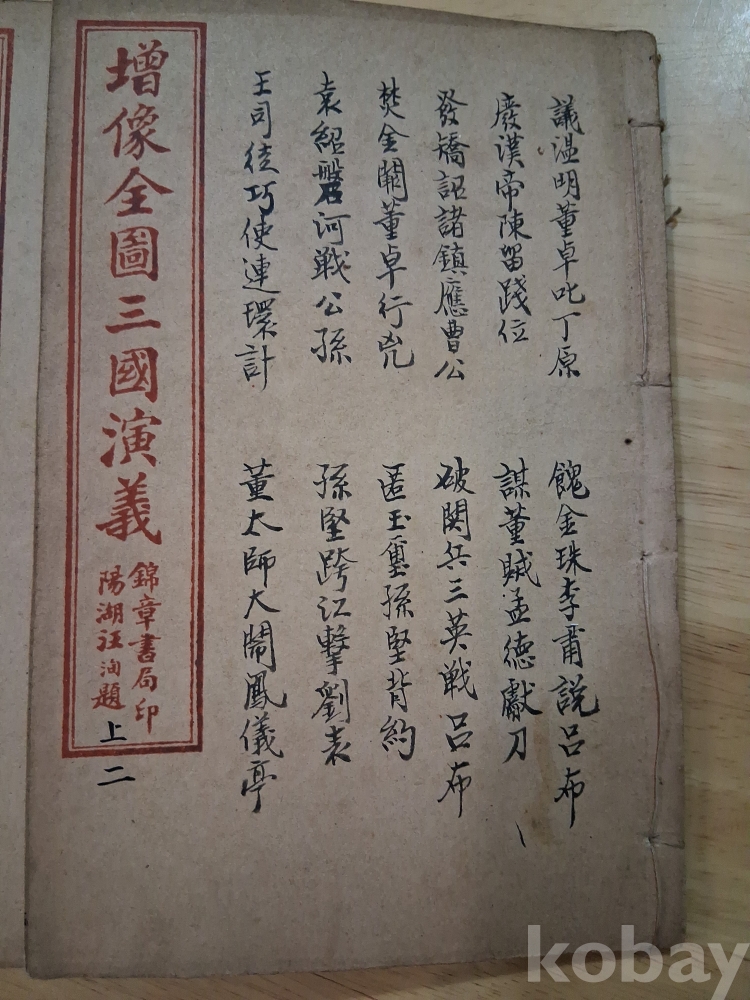 議温明董卓叱丁原 餽金珠李肅說呂布
廢漢帝陳留踐位 謀董賊孟德獻刀
發矯詔諸鎮應曹公 破関兵三英戦呂布
焚金闕董卓行兇 匿玉璽孫堅背約
袁紹磐河戦公孫 孫堅跨江擊劉表
王司徒巧使連環計 董太師大鬧鳳儀亭
增像全圖三國演義
錦章書局印
陽湖汪洵題
上二
kobay